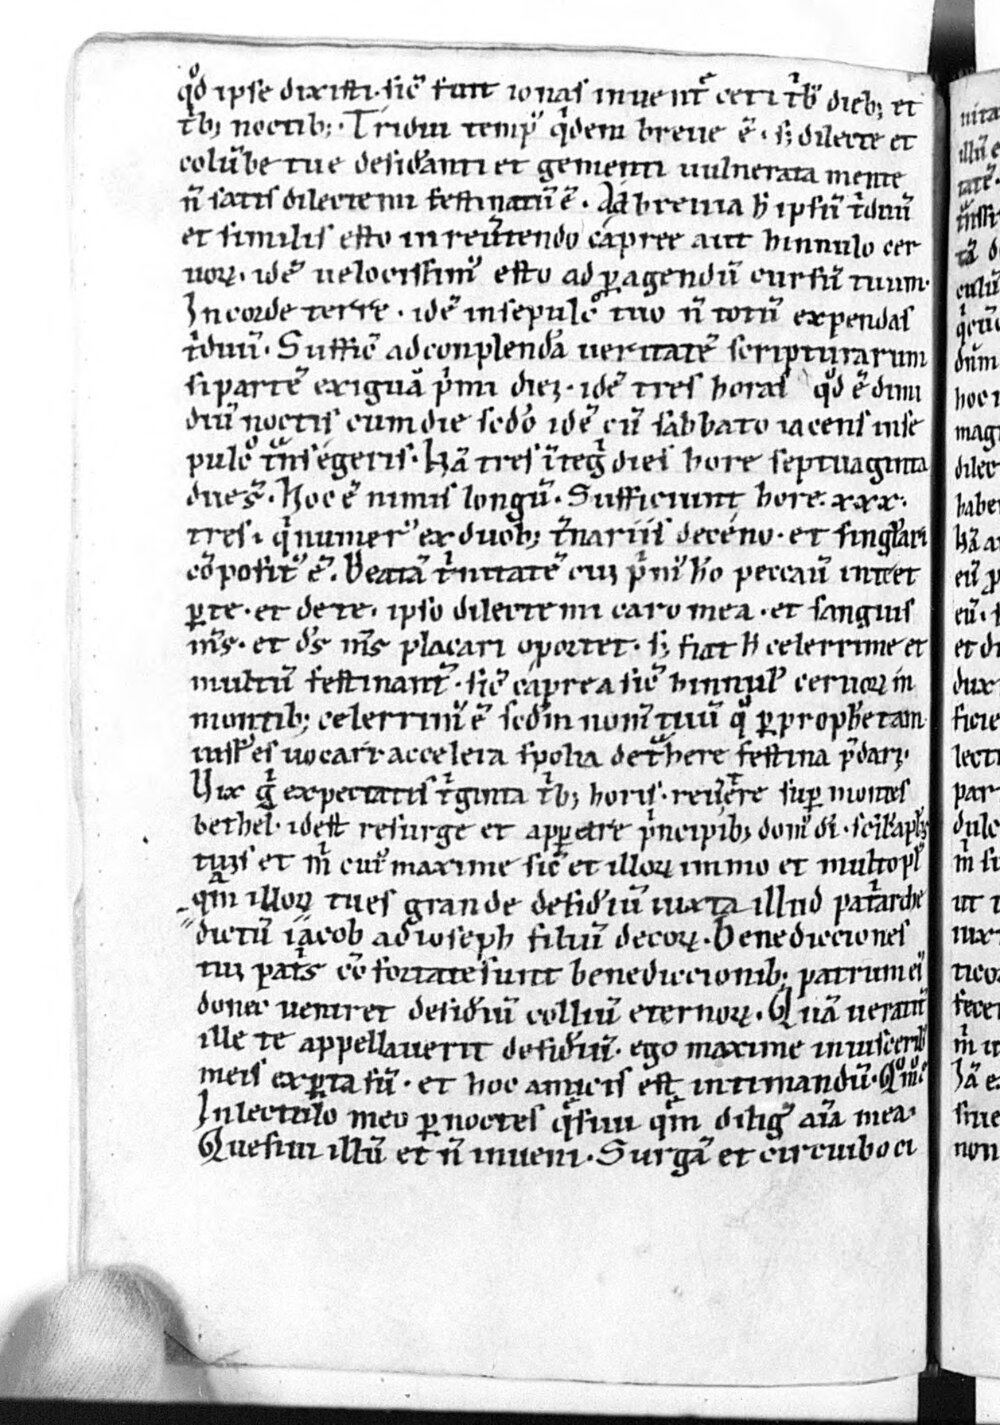 qͦd ipse dixisti· sic̄ fuit ionas in uent̄ ceti tⁱb᷒ dieb; et
tⁱb; noctib;· Tridui temp᷒ qⁱdem breue ē· s; dilecte et
colūbe tue desid̄anti et gementi uulnerata mente
n̄ satis dilecte mi festinatū ē· Abbreuia h̄ ipsū tⁱduū
et similis esto in reūtendo capree aut hinnulo cer
uoꝝ· idē uelocissim᷒ esto ad ꝑagendū cursū tuum·
In corde terre· idē in sepulcͦ tuo n̄ totū expendas
tⁱduū· Suffic̄ ad conplendā ueritatē scripturarum
si partē exiguā pⁱmi diei· idē tres horas qͦd ē dimi
diū noctis cum die scd̄o idē cū sabbato iacens in se
pulcͦ tⁿsegeris· Nā tres īteḡ dies hore septuaginta
due s̄· Hoc ē nimis longū· Sufficiunt hore· xxx·
tres· qⁱ numer᷒ ex duob; t̄nariis deceno· et singlari
cōposit᷒ ē· Beatā tⁱnitatē cui pⁱm᷒ hō peccauit
ꝑ te· et de te· ipso dilecte mi caro mea· et sanguis
m̄s· et d̄s m̄s placari oportet· s; fiat h̄ celerrime et
multū festinant̄· sic̄ caprea sic̄ hinnul᷒ ceruoꝝ in
montib; celerrim᷒ ē scd̄m nom̄ tuū qͦ ꝑ prophetam
iuss᷒ es uocari accelera spolia det̾here festina p̄dari·
Vix gͥ expectatis tⁱginta tⁱb; horis· reūtere suꝑ montes
bethel· id est resurge et apparere pⁱncipib; dom᷒ dī· scil̄ apl̄is
tuis et mⁱ cui᷒ maxime sic̄ et illoꝝ immo et multo pl᷒
qͣm illoꝝ tu es grande desid̄iū iuxta illud patⁱarche
dictū iacob ad ioseph filiū decoꝝ· Benedicciones
tui patⁱs cōfortate sunt benediccionib; patrum ei᷒
donec ueniret desid̄iū colliū eternoꝝ· Quā ueraciť
ille te appellauerit desid̄iū· ego maxime in uiscerib᷒
meis exꝑta sū· et hoc amicis est intimandū· Qͦm̄o
In lectulo meo ꝑ noctes q̄siui qͣm diliḡ aīa mea·
Quesiui illū et n̄ inueni· Surgā et circuibo ci